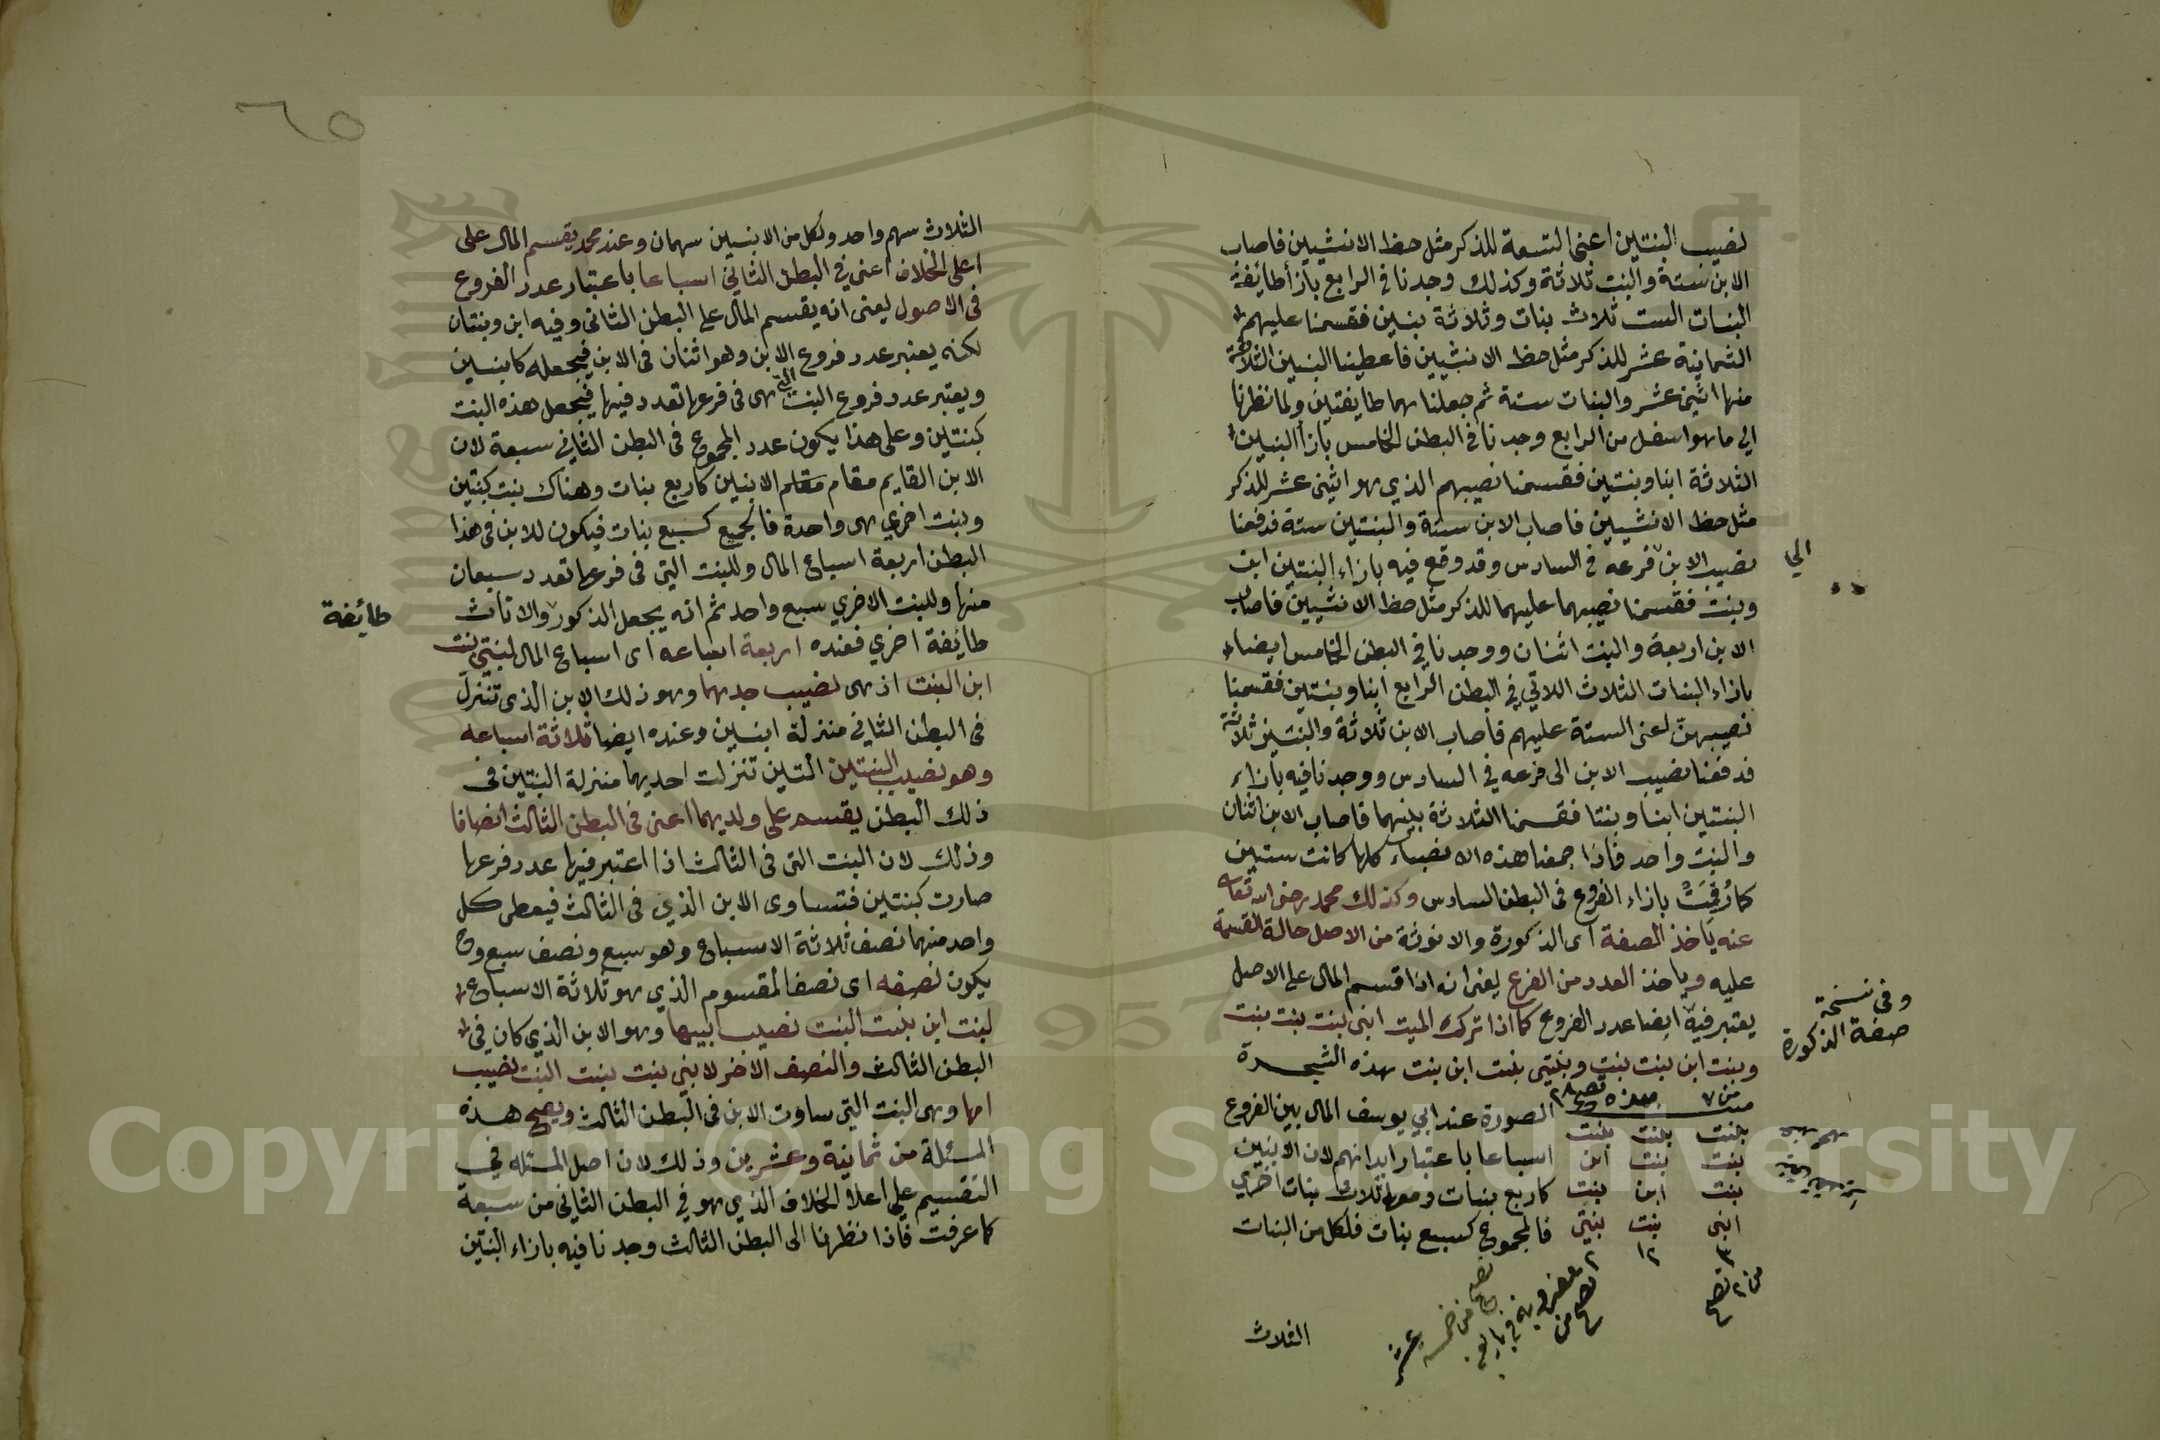 ٦٥
نصيب البنتين اعنى التسعة للذكر مثل حظ الانثيين فاصاب
الابن ستة والبنت ثلاثة وكذلك وجدنا فى الرابع بازأ طائفة
البنات الست ثلاث بنات وثلاثة بنين فقسمنا عليهم
الثمانية عشر للذكر مثل حظ الانثيين فاعطينا البنين الثلاثة
منها اثنى عشر والبنات ستة ثم جعلناهما طايفتين ولما نظرنا
الى ما هو اسفل من الرابع وجدنا فى البطن الخامس بازأ البنين
الثلاثة ابنا وبنتين فقسمنا نصيبهم الذي هو اثنى عشر للذكر
مثل حظ الانثيين فاصاب الابن ستة والبنتين ستة فدفعنا
نصيب الابن فرعه فى السادس وقد وقع فيه بازاء البنتين ابن
الى
وبنت فقسمنا نصيبهما عليهما للذكر مثل حظ الانثيين فاصاب
الابن اربعة والبنت اثنان ووجدنا فى البطن الخامس ايضا
بازاء البنات الثلاث اللاتي فى البطن الرابع ابنا وبنتين فقسمنا
نصيبهن اعنى الستة عليهم فاصاب الابن ثلاثة والبنتين ثلاثة
فدفعنا نصيب الابن الى فرعه في السادس ووجدنا فيه بازاء
البنتين ابنا وبنتا فقسمنا الثلاثة بينهما فاصاب الابن اثنان
والبنت واحد فاذا جمعنا هذه الانصباء كلها كانت ستين
كما رقمت بازاء الفروع فى البطن السادس وكذلك محمد رضى الله تعالى
عنه يأخذ الصفة اى الذكورة والانوثة من الاصل حالة القسمة
وفى نسخة
صفة الذكورة
عليه وياخذ العدد من الفرع يعنى انه اذا قسم المال على الاصل
يعتبر فيه ايضا عدد الفروع كما اذا ترك الميت ابنى بنت بنت بنت
وبنت ابن بنت بنت وبنتي بنت ابن بنت بهذه الشجرة
من ٧ هذه تصح ٢٨
بنت بنت بنت
بنت بنت ابن
بنت ابن بنت
ابنى بنت بنتي
الصورة عند ابي يوسف المال بين الفروع
اسباعا باعتبار ابدانهم لان الابنين
كاربع بنات ومعها ثلاث بنات اخري
فالمجموع كسبع بنات فلكل من البنات
الثلاث
الثلاث سهم واحد ولكل من الابنين سهمان وعند محمد يقسم المال على
اعلى الخلاف اعنى في البطن الثاني اسباعا باعتبار عدد الفروع
فى الاصول يعنى انه يقسم المال على البطن الثانى وفيه ابن وبنتان
لكنه يعتبر عدد فروع الابن وهو اثنان فى الابن فيجعله كابنين
ويعتبر عدد فروع البنت التى هى فى فرعها تعدد فيها فيجعل هذه البنت
كبنتين وعلى هذا يكون عدد المجموع فى البطن الثانى سبعة لان
الابن القايم مقام مقام الابنين كاربع بنات وهناك بنت كبنتين
وبنت اخري هى واحدة فالجميع كسبع بنات فيكون للابن فى هذا
البطن اربعة اسباع المال وللبنت التي فى فرعها تعدد سبعان
منها وللبنت الاخري سبع واحد ثم انه يجعل الذكور والاناث
طائفة
طائفة اخري فعنده اربعة اسباعه اى اسباع المال لبنتي بنت
ابن البنت اذ هى نصيب جدهما وهو ذلك الابن الذى تنزل
فى البطن الثانى منزلة ابنين وعنده ايضا ثلاثة اسباعه
وهو نصيب البنتين التين تنزلت احديهما منزلة البنتين فى
ذلك البطن يقسم على ولديهما اعنى فى البطن الثالث انصافا
وذلك لان البنت التى فى الثالث اذا اعتبر فيها عدد فرعها
صارت كبنتين فتساوى الابن الذي فى الثالث فيعطى كل
واحد منهما نصف ثلاثة الاسباع وهو سبع ونصف سبع وح
يكون نصفه اى نصف المقسوم الذي هو ثلاثة الاسباع
لبنت ابن بنت البنت نصيب ابيها وهو الابن الذي كان فى
البطن الثالث والنصف الاخر لابنى بنت بنت البنت نصيب
امها وهى البنت التي ساوت الابن فى البطن الثالث ويصح هذه
المسئلة من ثمانية وعشرين وذلك لان اصل المسئله فى
التقسيم على اعلا الخلاف الذي هو في البطن الثانى من سبعة
كما عرفت فاذا نظرنا الى البطن الثالث وجدنا فيه بازاء البنتين
Copyright © King Saud University
1957